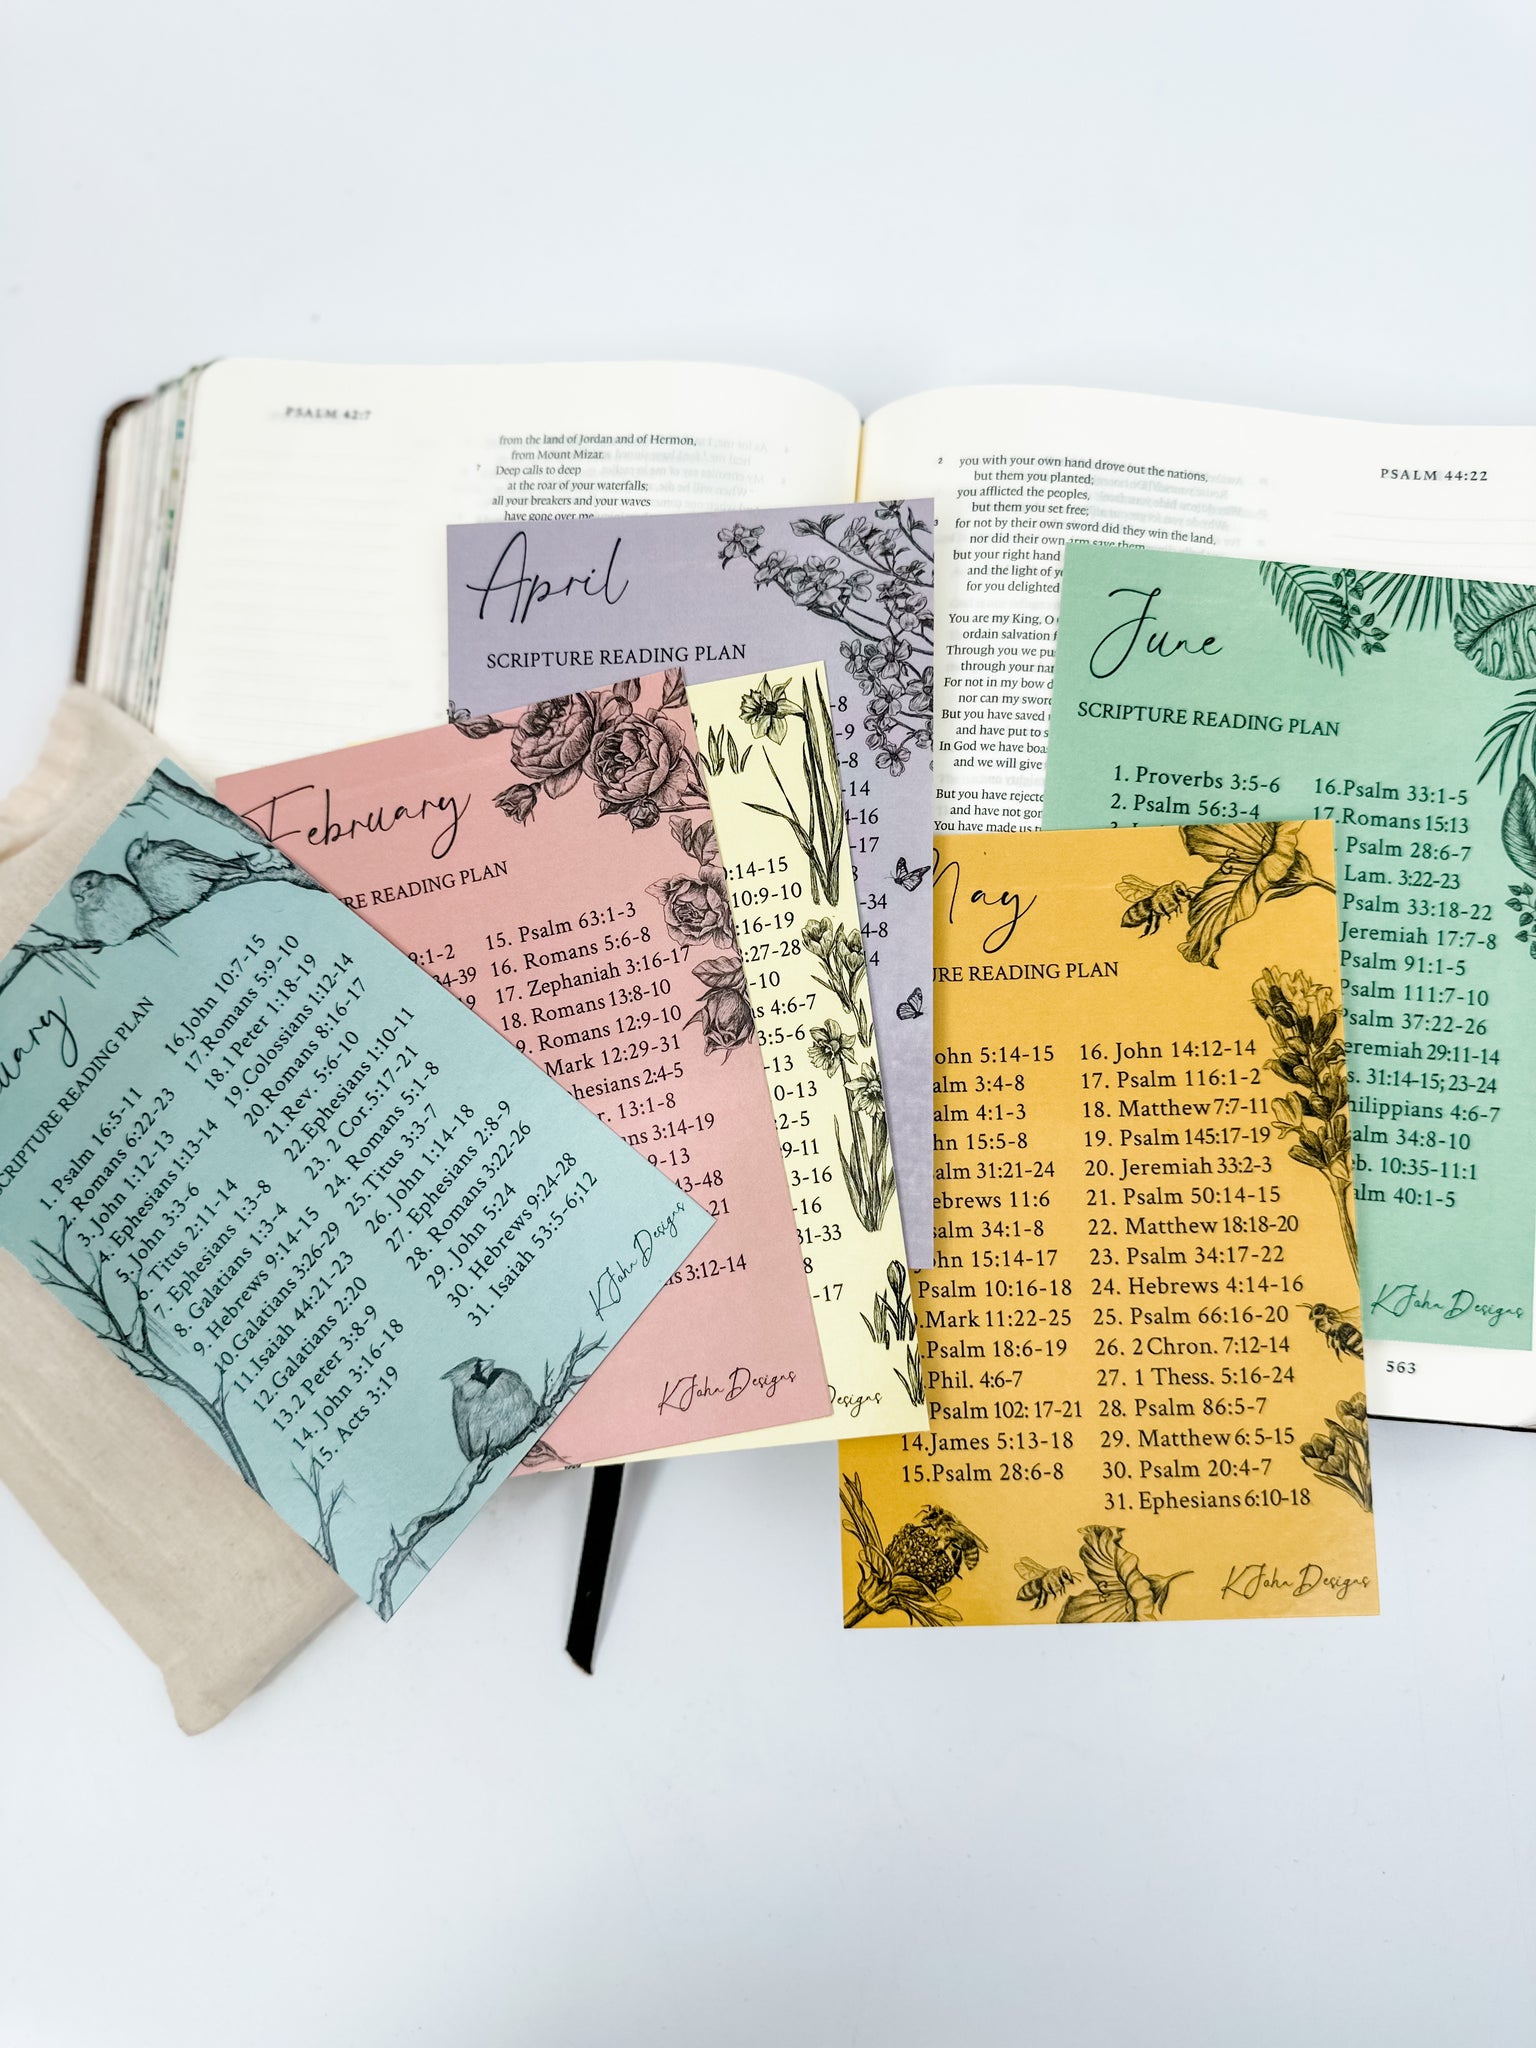 PSALM 42:7
from the land of Jordan and of Hermon,
from Mount Mizar.
7 Deep calls to deep
at the roar of your waterfalls;
all your breakers and your waves
have gone over me
2 you with your own hand drove out the nations,
but them you planted;
you afflicted the peoples,
but them you set free;
3 for not by their own sword did they win the land,
nor did their own arm save them,
but your right hand
and the light of
for you delighted
You are my King, O
ordain salvation
Through you we
through your
For not in my bow
nor can my sword
But you have saved
and have put to
In God we have
and we will give
But you have
and have not
You have made us
PSALM 44:22
563
April
SCRIPTURE READING PLAN
-8
-9
-8
14
4-16
-17
-34
4-8
4
June
SCRIPTURE READING PLAN
1. Proverbs 3:5-6
2. Psalm 56:3-4
16.Psalm 33:1-5
17.Romans 15:13
. Psalm 28:6-7
Lam. 3:22-23
Psalm 33:18-22
Jeremiah 17:7-8
Psalm 91:1-5
Psalm 111:7-10
Psalm 37:22-26
eremiah 29:11-14
s. 31:14-15; 23-24
hilippians 4:6-7
alm 34:8-10
eb. 10:35-11:1
alm 40:1-5
KJohnDesigns
February
RE READING PLAN
9:1-2
34-39
15. Psalm 63:1-3
16. Romans 5:6-8
17. Zephaniah 3:16-17
18. Romans 13:8-10
9. Romans 12:9-10
Mark 12:29-31
phesians 2:4-5
r. 13:1-8
ns 3:14-19
9-13
43-48
21
s 3:12-14
KJohnDesigns
:14-15
10:9-10
:16-19
:27-28
-10
s 4:6-7
3:5-6
-13
0-13
2-5
9-11
3-16
-16
31-33
8
-17
esigns
uary
SCRIPTURE READING PLAN
1. Psalm 16:5-11
2. Romans 6:22-23
3. John 1:12-13
4. Ephesians 1:13-14
5. John 3:3-6
6. Titus 2:11-14
7. Ephesians 1:3-8
8. Galatians 1:3-4
9. Hebrews 9:14-15
10.Galatians 3:26-29
11.Isaiah 44:21-23
12. Galatians 2:20
13.2 Peter 3:8-9
14. John 3:16-18
15. Acts 3:19
16.John 10:7-15
17.Romans 5:9-10
18.1 Peter 1:18-19
19.Colossians 1:12-14
20.Romans 8:16-17
21.Rev. 5:6-10
22.Ephesians 1:10-11
23. 2 Cor. 5:17-21
24. Romans 5:1-8
25. Titus 3:3-7
26. John 1:14-18
27. Ephesians 2:8-9
28. Romans 3:22-26
29. John 5:24
30. Hebrews 9:24-28
31. Isaiah 53:5-6;12
KJohnDesigns
May
URE READING PLAN
ohn 5:14-15
alm 3:4-8
alm 4:1-3
hn 15:5-8
alm 31:21-24
ebrews 11:6
salm 34:1-8
ohn 15:14-17
Psalm 10:16-18
.Mark 11:22-25
.Psalm 18:6-19
.Phil. 4:6-7
Psalm 102: 17-21
14.James 5:13-18
15.Psalm 28:6-8
16. John 14:12-14
17. Psalm 116:1-2
18. Matthew 7:7-11
19. Psalm 145:17-19
20. Jeremiah 33:2-3
21. Psalm 50:14-15
22. Matthew 18:18-20
23. Psalm 34:17-22
24. Hebrews 4:14-16
25. Psalm 66:16-20
26. 2 Chron. 7:12-14
27. 1 Thess. 5:16-24
28. Psalm 86:5-7
29. Matthew 6: 5-15
30. Psalm 20:4-7
31. Ephesians 6:10-18
KJohnDesigns